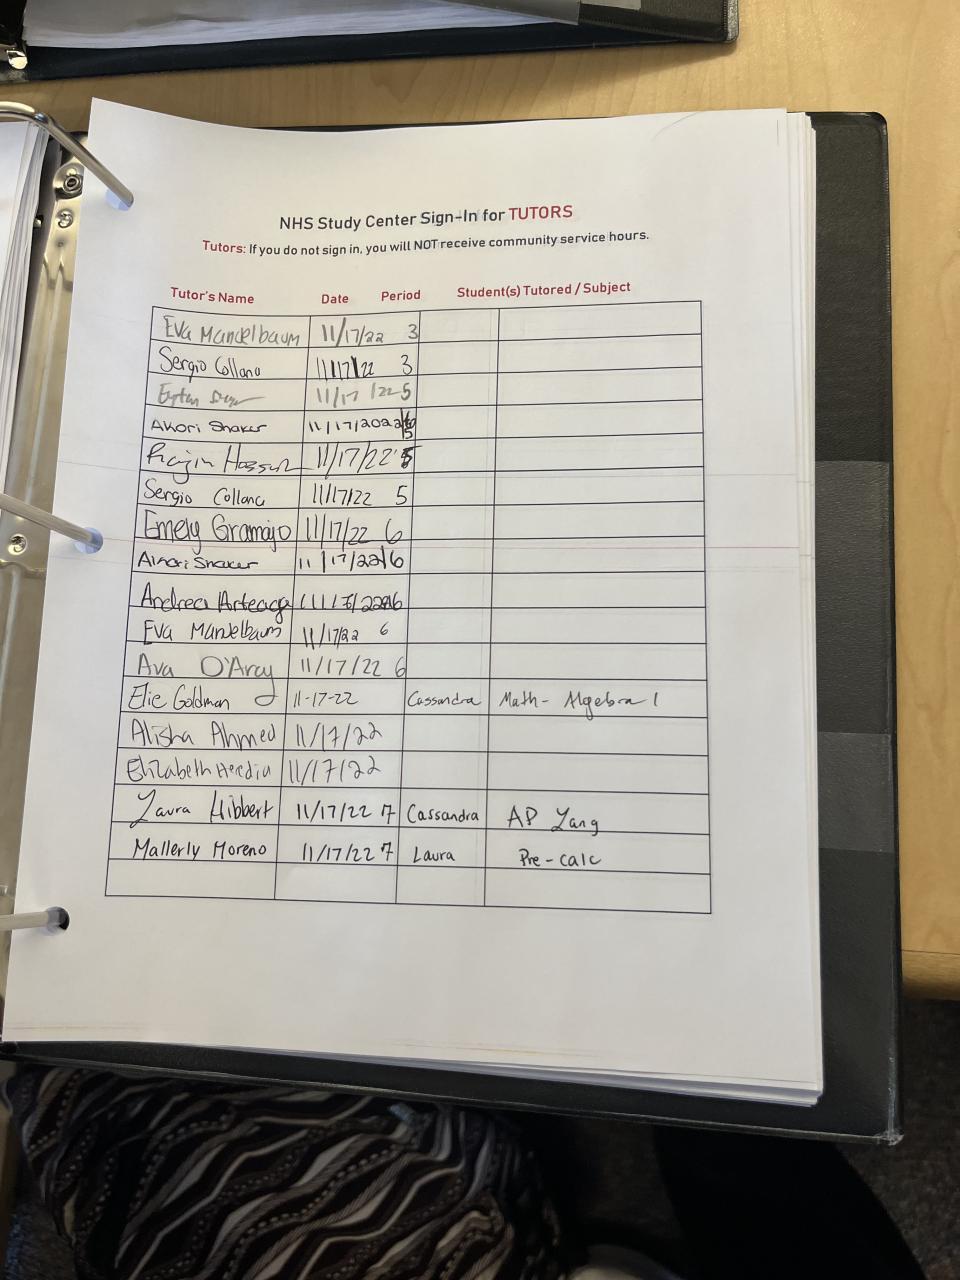 NHS Study Center Sign-In for TUTORS
Tutors: If you do not sign in, you will NOT receive community service hours.
Tutor's Name Date Period Student(s) Tutored / Subject
Eva Mandelbaum 11/17/22 3
Sergio Collano 11/17/22 3
11/17/22 5
Akori Shaker 11/17/2022 5
11/17/22 5
Sergio Collano 11/17/22 5
Emely Gramajo 11/17/22 6
Akori Shaker 11/17/22 6
Andrea Arteaga 11/17/22 6
Eva Mandelbaum 11/17/22 6
Ava O'Arcy 11/17/22 6
Elie Goldman 11-17-22 Cassandra Math- Algebra 1
Alisha Ahmed 11/17/22
Elizabeth Heredia 11/17/22
Laura Hibbert 11/17/22 7 Cassandra AP Lang
Mallerly Moreno 11/17/22 7 Laura Pre-calc